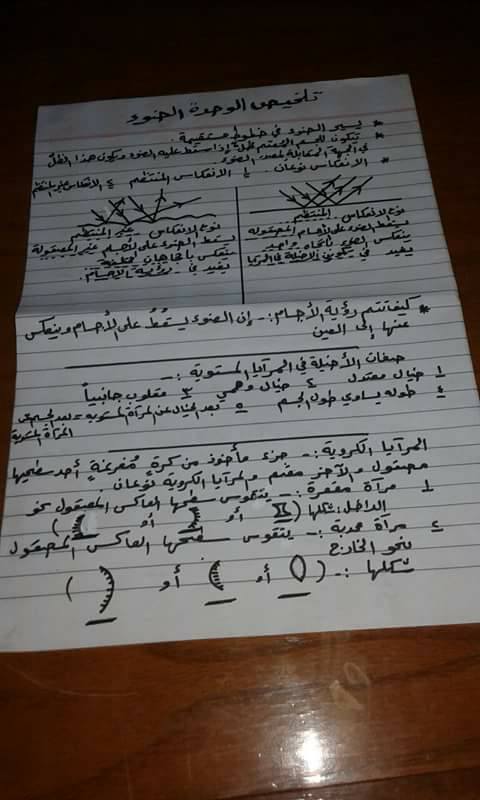 تلخيص الوحدة الضوء
* يسير الضوء في خطوط مستقيمة.
* يتكون للجسم المعتم ظلاً إذا سقط عليه الضوء ويكون هذا الظل
في الجهة المقابلة لمصدر الضوء
* الانعكاس نوعان ١ الانعكاس المنتظم ٢ الانعكاس غير المنتظم
نوع الانعكاس - المنتظم
يسقط الضوء على الأجسام المصقولة
ينعكس الضوء باتجاه واحد
يفيد في تكوين الأخيلة في المرايا
نوع الانعكاس - غير المنتظم
يسقط الضوء على الأجسام غير المصقولة
ينعكس باتجاهات مختلفة
يفيد في رؤية الأجسام.
* كيف تتم رؤية الأجسام :- إن الضوء يسقُطُ على الأجسام وينعكس
عنها إلى العين
صفات الأخيلة في المرايا المستوية :-
١ خيال معتدل ٢ خيال وهمي ٣ مقلوب جانبياً
٤ طوله يساوي طول الجسم ٥ بعد الخيال عن المرآة المستوية = بعد الجسم عن
المرآة المستوية
المرايا الكروية :- جزء مأخوذ من كرةٍ مُفرغةٍ أحد سطحيها
مصقول والآخر معتم والمرايا الكروية نوعان
١ مرآة مقعرة :- يتقوس سطحها العاكس المصقول نحو
الداخل شكلها ( أو أو )
٢ مرآة محدبة :- يتقوس سطحها العاكس المصقول
نحو الخارج
شكلها :- ( أو أو )